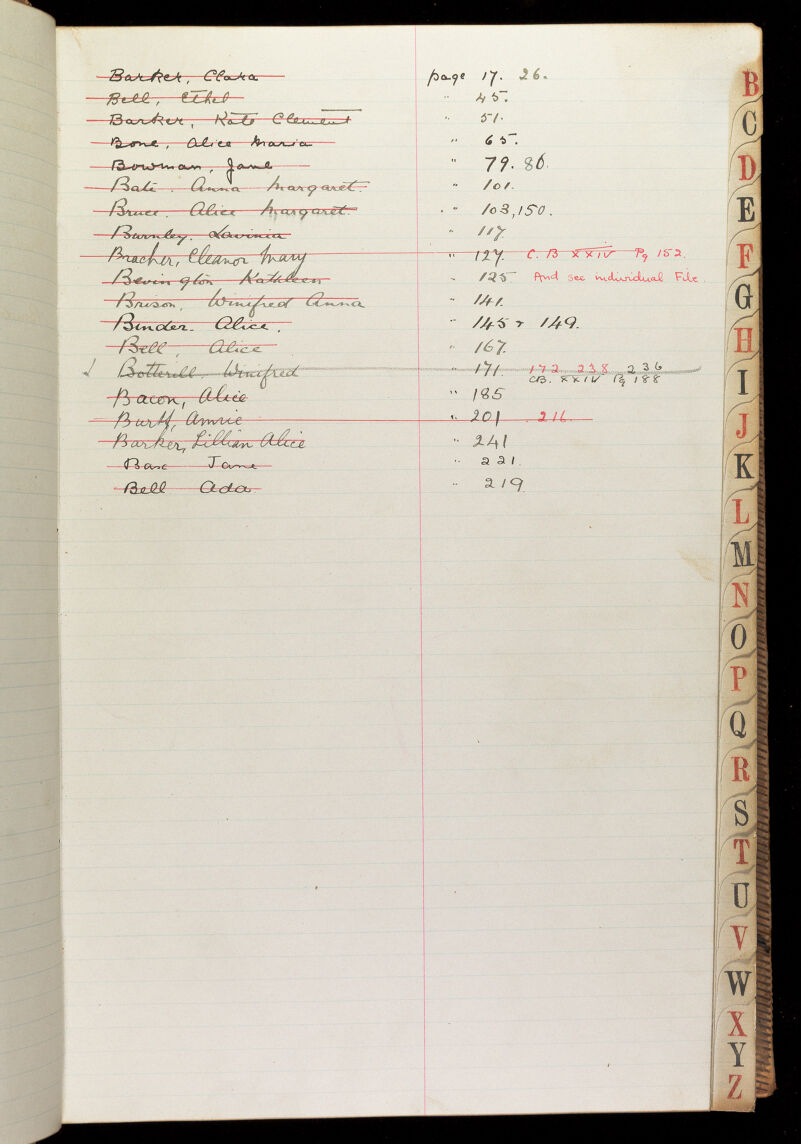 Barker, Clara page 17. 26.
Bell, Ethel " 45.
Barker, Kate Clement " 51.
Bone, Alice Maria " 65.
Bowman, Jane " 79. 86.
Bate. Anna Margaret. " 101.
Bruce. Alice Margaret. " 103, 150.
Burnley. Lavinia " 117
Bracher, Eleanor Mary " 127. C. B XXIV Pg 152.
Bevington Kathleen " 125 And see individual File.
Brison. Winifred Anna " 141.
Binder. Alice. " 145 & 149.
Bell, Alice " 167.
Botterill, Winifred " 171 172 238 236
CB. XXIV Pg 188
Bacon, Alice " 185
Burtt, Annie " 201 216
Barker, Lillian Alice " 241
Base Jane " 221
Bell Ada " 219
B
C
D
E
F
G
H
I
J
K
L
M
N
O
P
Q
R
S
T
U
V
W
X
Y
Z